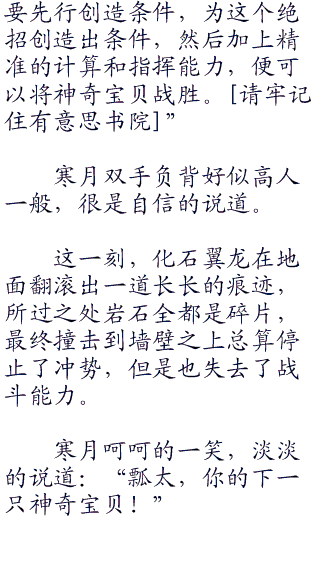 要先行创造条件，为这个绝
招创造出条件，然后加上精
准的计算和指挥能力，便可
以将神奇宝贝战胜。[请牢记
住有意思书院]”
寒月双手负背好似高人
一般，很是自信的说道。
这一刻，化石翼龙在地
面翻滚出一道长长的痕迹，
所过之处岩石全都是碎片，
最终撞击到墙壁之上总算停
止了冲势，但是也失去了战
斗能力。
寒月呵呵的一笑，淡淡
的说道：“瓢太，你的下一
只神奇宝贝！”